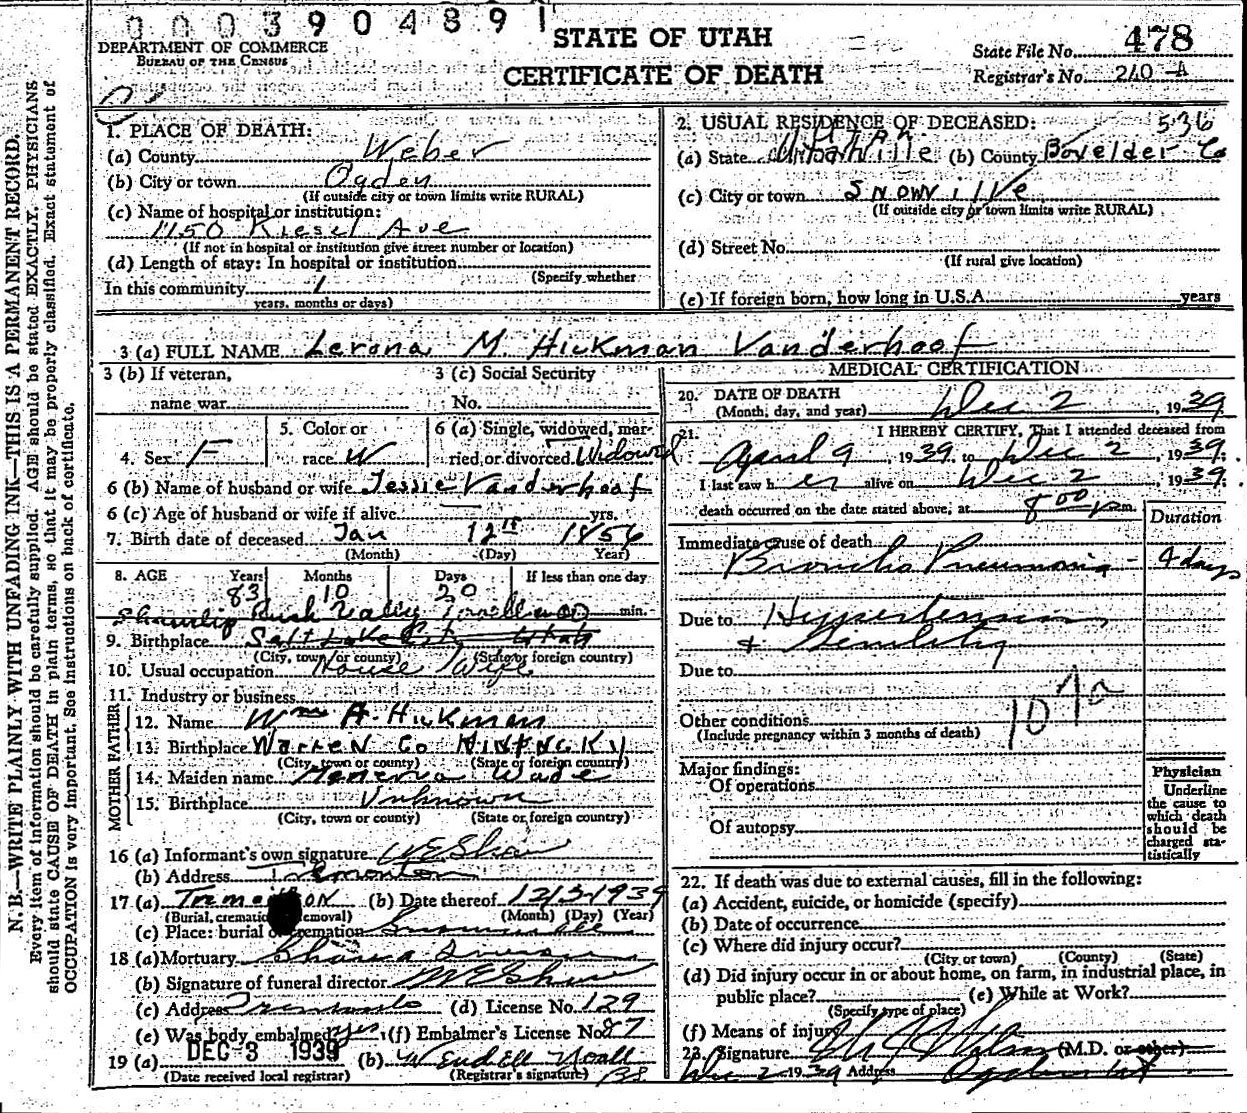 0003904891
DEPARTMENT OF COMMERCE
BUREAU OF THE CENSUS
STATE OF UTAH
CERTIFICATE OF DEATH
State File No. 478
Registrar's No. 210-A
N. B.—WRITE PLAINLY WITH UNFADING INK—THIS IS A PERMANENT RECORD.
Every item of information should be carefully supplied. AGE should be stated EXACTLY. PHYSICIANS
should state CAUSE OF DEATH in plain terms, so that it may be properly classified. Exact statement of
OCCUPATION is very important. See instructions on back of certificate.
1. PLACE OF DEATH:
(a) County Weber
(b) City or town Ogden
(If outside city or town limits write RURAL)
(c) Name of hospital or institution:
1150 Kiesel Ave
(If not in hospital or institution give street number or location)
(d) Length of stay: In hospital or institution
(Specify whether
In this community 1
years, months or days)
2. USUAL RESIDENCE OF DECEASED: 536
(a) State Utah (b) County Boxelder Co
(c) City or town Snowville
(If outside city or town limits write RURAL)
(d) Street No.
(If rural give location)
(e) If foreign born, how long in U.S.A. years
3 (a) FULL NAME Lerona M. Hickman Vanderhoof
3 (b) If veteran,
name war
3 (c) Social Security
No.
4. Sex F
5. Color or
race W
6 (a) Single, widowed, mar-
ried or divorced Widowed
6 (b) Name of husband or wife Jessie Vanderhoof
6 (c) Age of husband or wife if alive yrs.
7. Birth date of deceased Jan 12th 1856
(Month) (Day) Year)
8. AGE Years Months Days If less than one day
83 10 20
min.
Rush Valley
9. Birthplace Salt Lake City Utah
(City, town or county) (State or foreign country)
10. Usual occupation House Wife
11. Industry or business
FATHER
12. Name Wm A. Hickman
13. Birthplace Warren Co KINTNCKY
(City, town or county) (State or foreign country)
MOTHER
14. Maiden name Menerva Wade
15. Birthplace Unknown
(City, town or county) (State or foreign country)
16 (a) Informant's own signature W E Shaw
(b) Address Tremonton
17 (a) Tremonton (b) Date thereof 12/3-1939
(Burial, cremation, removal) (Month) (Day) (Year)
(c) Place: burial or cremation Snowville
18 (a) Mortuary
(b) Signature of funeral director W E Shaw
(c) Address Tremonton (d) License No. 129
(e) Was body embalmed yes (f) Embalmer's License No. 87
19 (a) DEC 3 1939 (b) Wendell Noall
(Date received local registrar) (Registrar's signature)
MEDICAL CERTIFICATION
20. DATE OF DEATH
(Month, day, and year) Dec 2, 1939
21. I HEREBY CERTIFY, That I attended deceased from
April 9, 1939 to Dec 2, 1939.
I last saw her alive on Dec 2, 1939;
death occurred on the date stated above, at 8:00 p.m.
Duration
Immediate cause of death
Broncho Pneumonia - 4 days
Due to Hypertension
& Senility
Due to
Other conditions
(Include pregnancy within 3 months of death)
Major findings:
Of operations
Of autopsy
Physician
Underline
the cause to
which death
should be
charged sta-
tistically
22. If death was due to external causes, fill in the following:
(a) Accident, suicide, or homicide (specify)
(b) Date of occurrence
(c) Where did injury occur?
(City or town) (County) (State)
(d) Did injury occur in or about home, on farm, in industrial place, in
public place? (e) While at Work?
(Specify type of place)
(f) Means of injury
23. Signature (M.D. or other)
Dec 2 1939 Address Ogden Ut